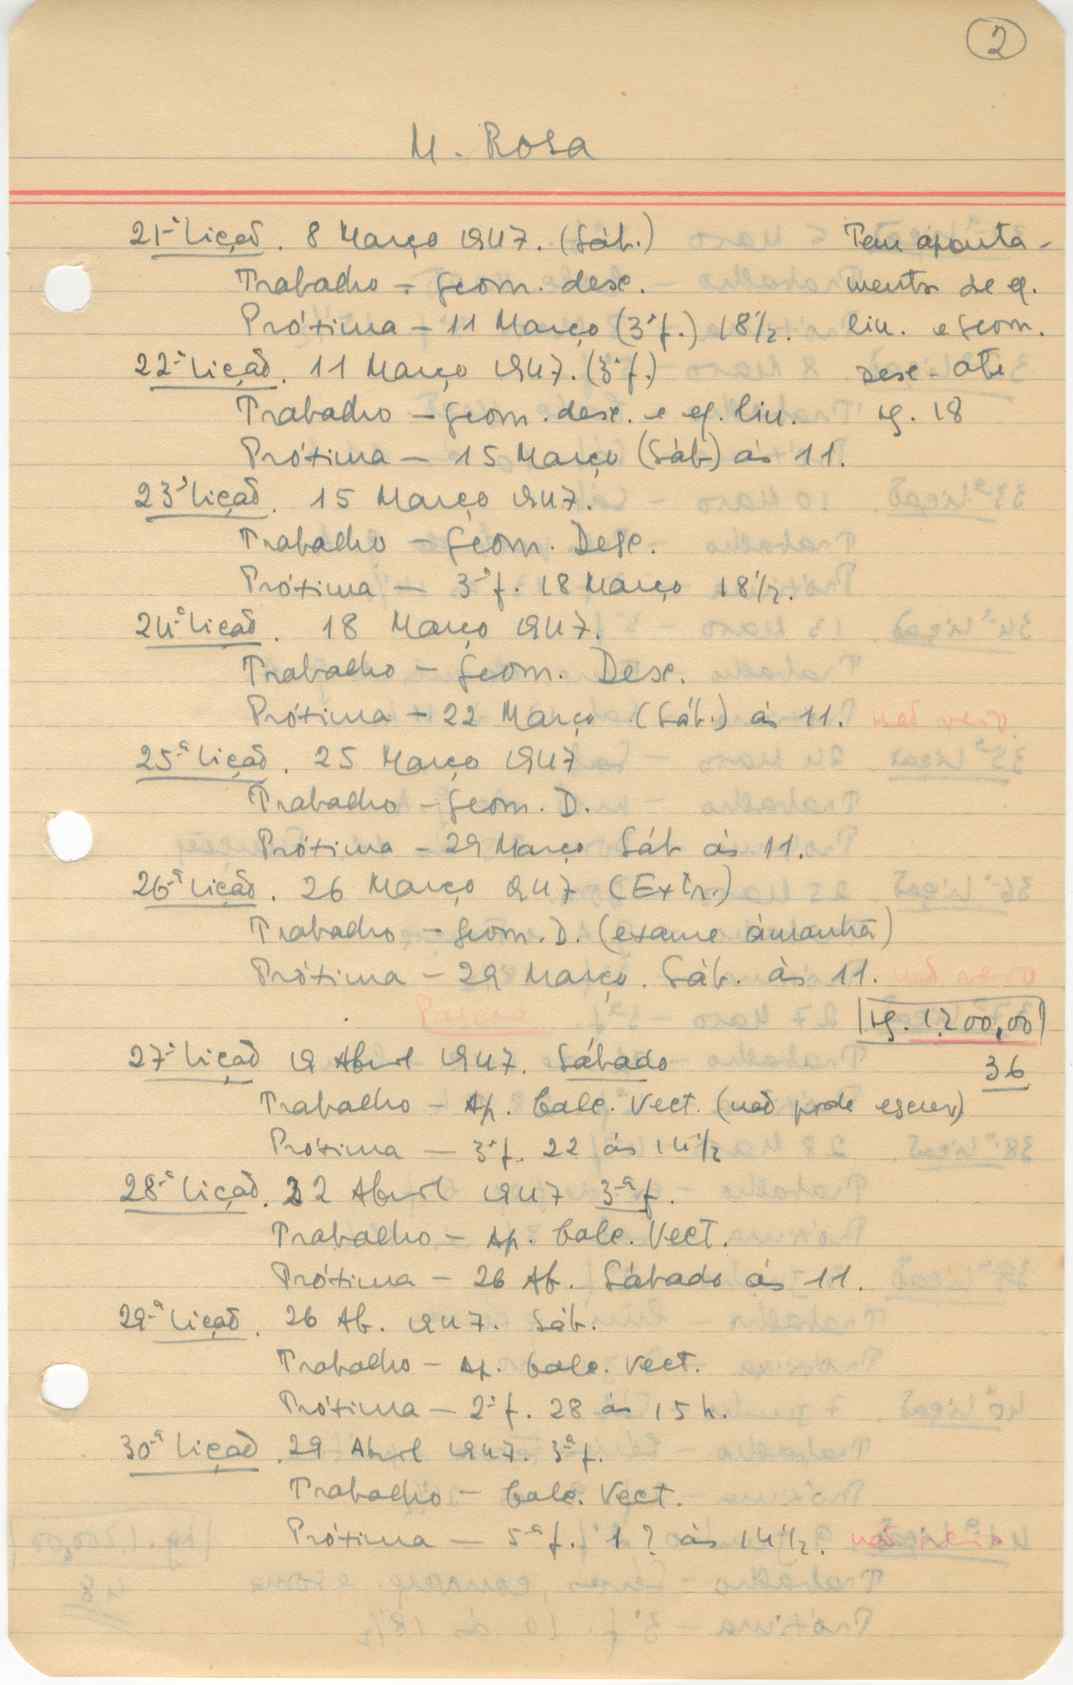 2
M. Rosa
21ª Lição. 8 Março 1947. (Sáb.) Tem aponta-
Trabalho - Geom. desc. mentos de eq.
Próxima - 11 Março (3ª f.) 18½. lin. e geom.
22ª Lição. 11 Março 1947. (3ª f.) desc. até
Trabalho - Geom. desc. e eq. lin. 18
Próxima - 15 Março (Sáb) às 11.
23ª Lição. 15 Março 1947.
Trabalho - Geom. Desc.
Próxima - 3ª f. 18 Março 18½.
24ª Lição. 18 Março 1947.
Trabalho - Geom. Desc.
Próxima - 22 Março (Sáb.) às 11. não veio
25ª Lição. 25 Março 1947
Trabalho - Geom. D.
Próxima - 29 Março Sáb às 11.
26ª Lição. 26 Março 1947 (Extr.)
Trabalho - Geom. D. (exame àmanhã)
Próxima - 29 Março. Sáb. às 11. não veio
Pagou 1.200,00
27ª Lição 19 Abril 1947. Sábado 36
Trabalho - Ap. Calc. Vect. (não pode escrev)
Próxima - 3ª f. 22 às 14½
28ª Lição. 22 Abril 1947 3ª f.
Trabalho - Ap. Calc. Vect.
Próxima - 26 Ab. Sábado às 11.
29ª Lição. 26 Ab. 1947. Sáb.
Trabalho - Ap. Calc. Vect.
Próxima - 2ª f. 28 às 15 h.
30ª Lição. 29 Abril 1947. 3ª f.
Trabalho - Calc. Vect.
Próxima - 5ª f. 1? às 14½. não